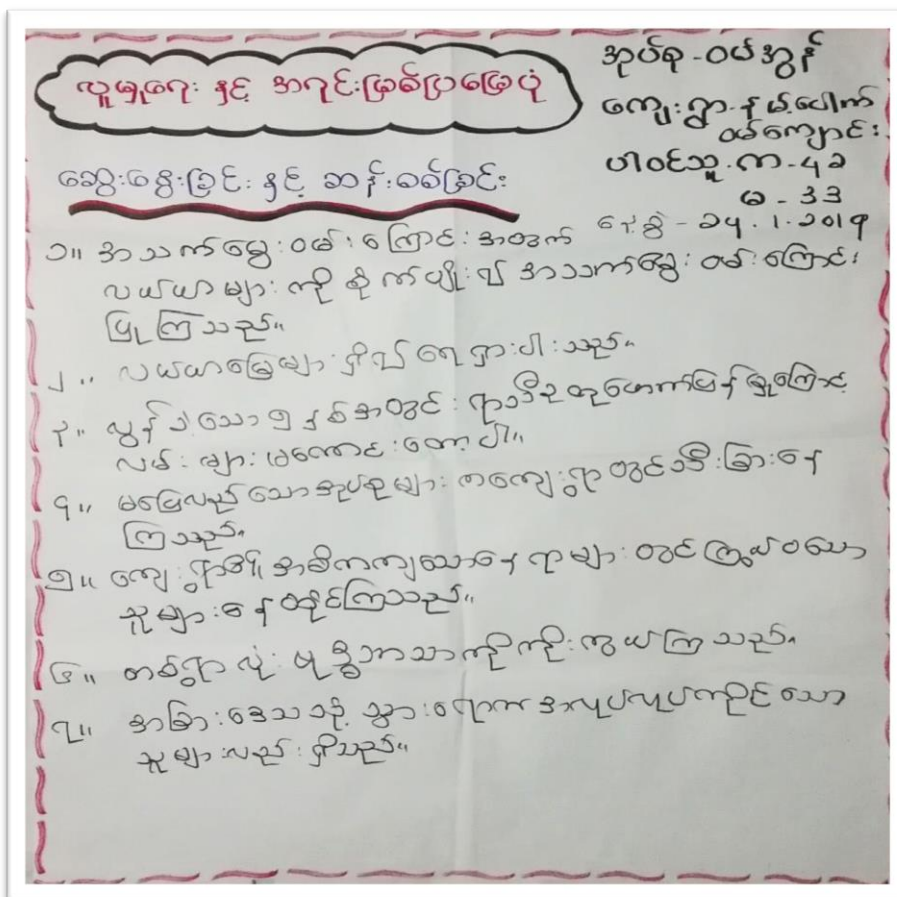 လူမှုရေး နှင့် အရင်းမြစ်ပြမြေပုံ
အုပ်စု - ဝမ်အွန်
ကျေးရွာ - နမ့်ပေါက်
ဝမ်ကျောင်း
ပါဝင်သူ - ကာ - ၄၁
မ - ၁၁
နေ့စွဲ - ၁၅.1.2019
ဆွေးနွေးခြင်း နှင့် ဆန်းစစ်ခြင်း
၁။ အသက်မွေးဝမ်းကြောင်းအတွက်
လယ်ယာများကို စိုက်ပျိုး၍ အသက်မွေးဝမ်းကြောင်း
ပြုကြသည်။
၂။ လယ်ယာမြေများ ရှိ၍ ရေရှားပါးသည်။
၃။ လွန်ခဲ့သော ၅ နှစ်အတွင်း ရာသီဥတုဖောက်ပြန်မှုကြောင့်
လမ်းများ မကောင်းတော့ပါ။
၄။ မပြေလည်သောအုပ်စုများ ကကျေးရွာတွင်သီးခြားနေ
ကြသည်။
၅။ ကျေးရွာ၏ အဓိကကျသောနေရာများတွင်ကြွယ်ဝသော
သူများနေထိုင်ကြသည်။
၆။ တစ်ရွာလုံး ဗုဒ္ဓဘာသာကိုကိုးကွယ်ကြသည်။
၇။ အခြားဒေသသို့သွားရောက်အလုပ်လုပ်ကိုင်သော
သူများလည်းရှိသည်။